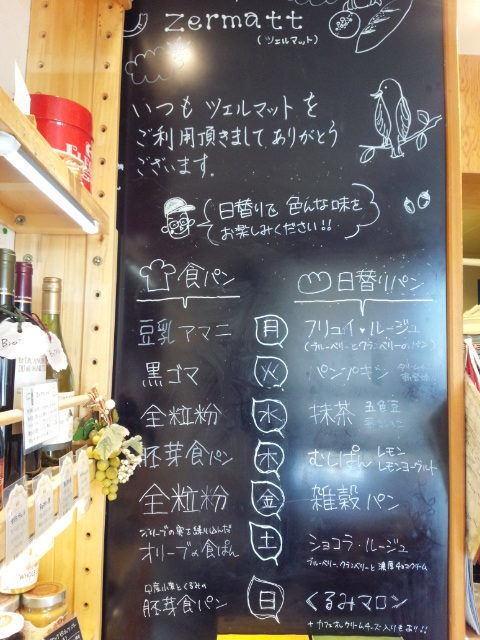 zermatt
(ツェルマット)
いつも ツェルマットを
ご利用頂きまして ありがとう
ございます.
日替りで 色んな味を
お楽しみください!!
食パン
日替りパン
豆乳アマニ
月
フリュイ・ルージュ
(ブルーベリーとクランベリーのパン)
黒ゴマ
火
全粒粉
水
抹茶
胚芽食パン
木
むしぱん レモン
レモンヨーグルト
全粒粉
金
雑穀パン
オリーブの実を練り込んだ
オリーブの食ぱん
土
ショコラ・ルージュ
ブルーベリー、クランベリーと濃厚チョコクリーム
くるみの
胚芽食パン
日
くるみマロン